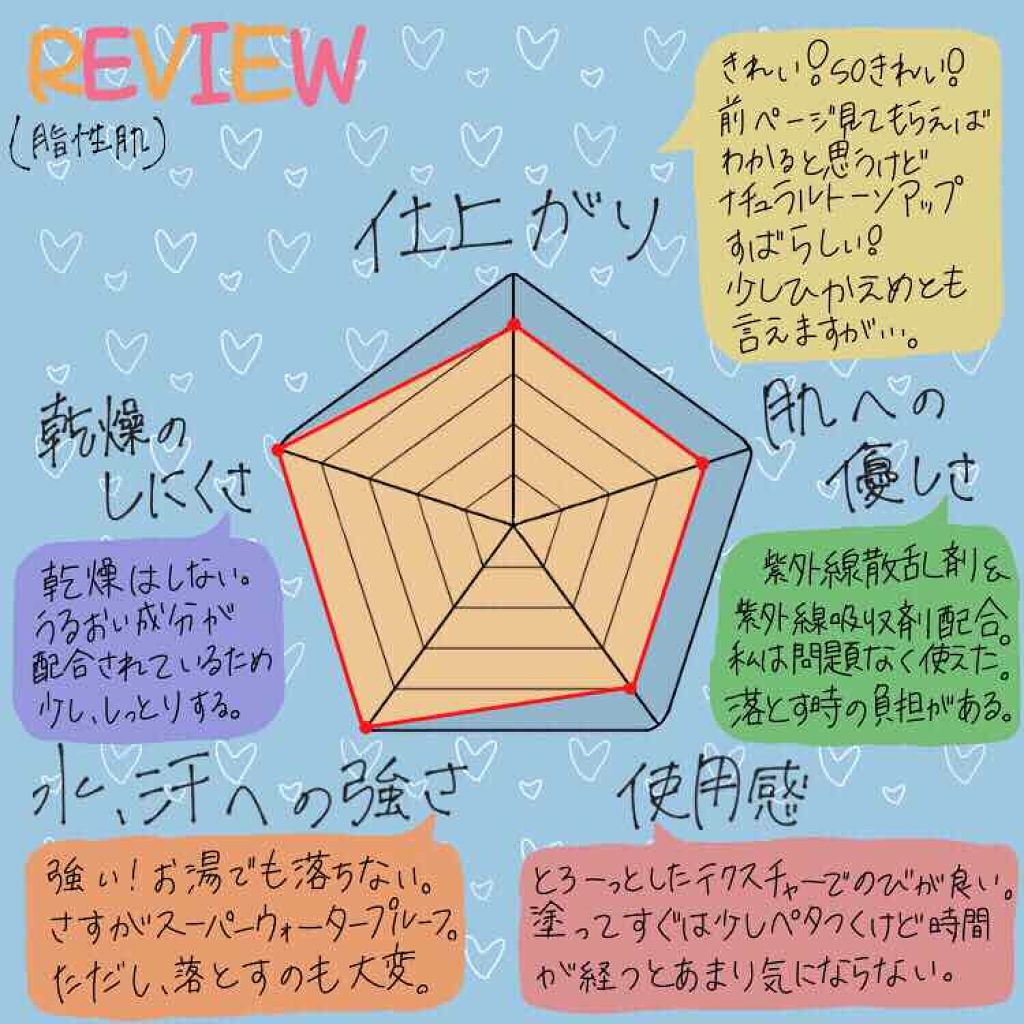 REVIEW
(脂性肌)
きれい!soきれい!
前ページ見てもらえば
わかると思うけど
ナチュラルトーンアップ
すばらしい!
少しひかえめとも
言えますが…。
仕上がり
肌への
優しさ
紫外線散乱剤&
紫外線吸収剤配合。
私は問題なく使えた。
落とす時の負担がある。
乾燥の
しにくさ
乾燥はしない。
うるおい成分が
配合されているため
少し、しっとりする。
水、汗への強さ
強い!お湯でも落ちない。
さすがスーパーウォータープルーフ。
ただし、落とすのも大変。
使用感
とろーっとしたテクスチャーでのびが良い。
塗ってすぐは少しペタつくけど時間
が経つとあまり気にならない。